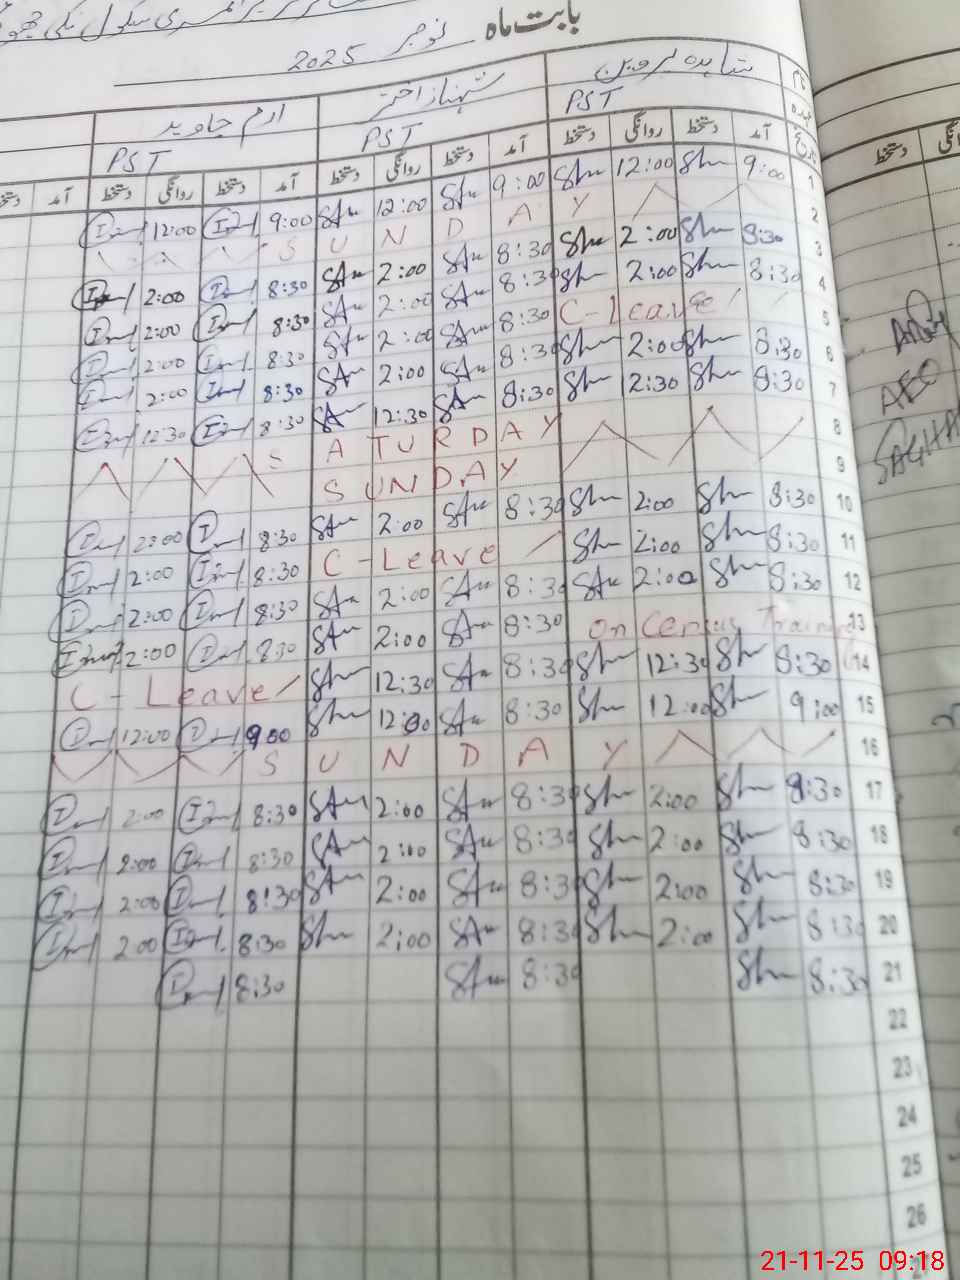 بابت ماہ نومبر 2025
نام شاہدہ پروین شہناز اختر ارم جاوید
عہدہ PST PST PST
تاریخ آمد دستخط روانگی دستخط آمد دستخط روانگی دستخط آمد دستخط روانگی دستخط آمد دستخط
1 9:00 Sh 12:00 Sh 9:00 SA 12:00 SA 9:00 12:00
2 SUNDAY
3 8:30 Sh 2:00 Sh 8:30 SA 2:00 SA 8:30 2:00
4 8:30 Sh 2:00 Sh 8:30 SA 2:00 SA 8:30 2:00
5 C-Leave 8:30 SA 2:00 SA 8:30 2:00
6 8:30 Sh 2:00 Sh 8:30 SA 2:00 SA 8:30 2:00
7 8:30 Sh 12:30 Sh 8:30 SA 12:30 SA 8:30 12:30
8 SATURDAY
9 SUNDAY
10 8:30 Sh 2:00 Sh 8:30 SA 2:00 SA 8:30 2:00
11 8:30 Sh 2:00 Sh C-Leave 8:30 2:00
12 8:30 Sh 2:00 SA 8:30 SA 2:00 SA 8:30 2:00
13 On Census Training 8:30 SA 2:00 SA 8:30 2:00
14 8:30 Sh 12:30 Sh 8:30 SA 12:30 Sh C-Leave
15 9:00 Sh 12:00 Sh 8:30 SA 12:00 Sh 9:00 12:00
16 SUNDAY
17 8:30 Sh 2:00 Sh 8:30 SA 2:00 SA 8:30 2:00
18 8:30 Sh 2:00 Sh 8:30 SA 2:00 SA 8:30 2:00
19 8:30 Sh 2:00 Sh 8:30 SA 2:00 SA 8:30 2:00
20 8:30 Sh 2:00 Sh 8:30 SA 2:00 Sh 8:30 2:00
21 8:30 Sh 8:30 SA 8:30
22
23
24
25
26
دستخط
AEO
21-11-25 09:18